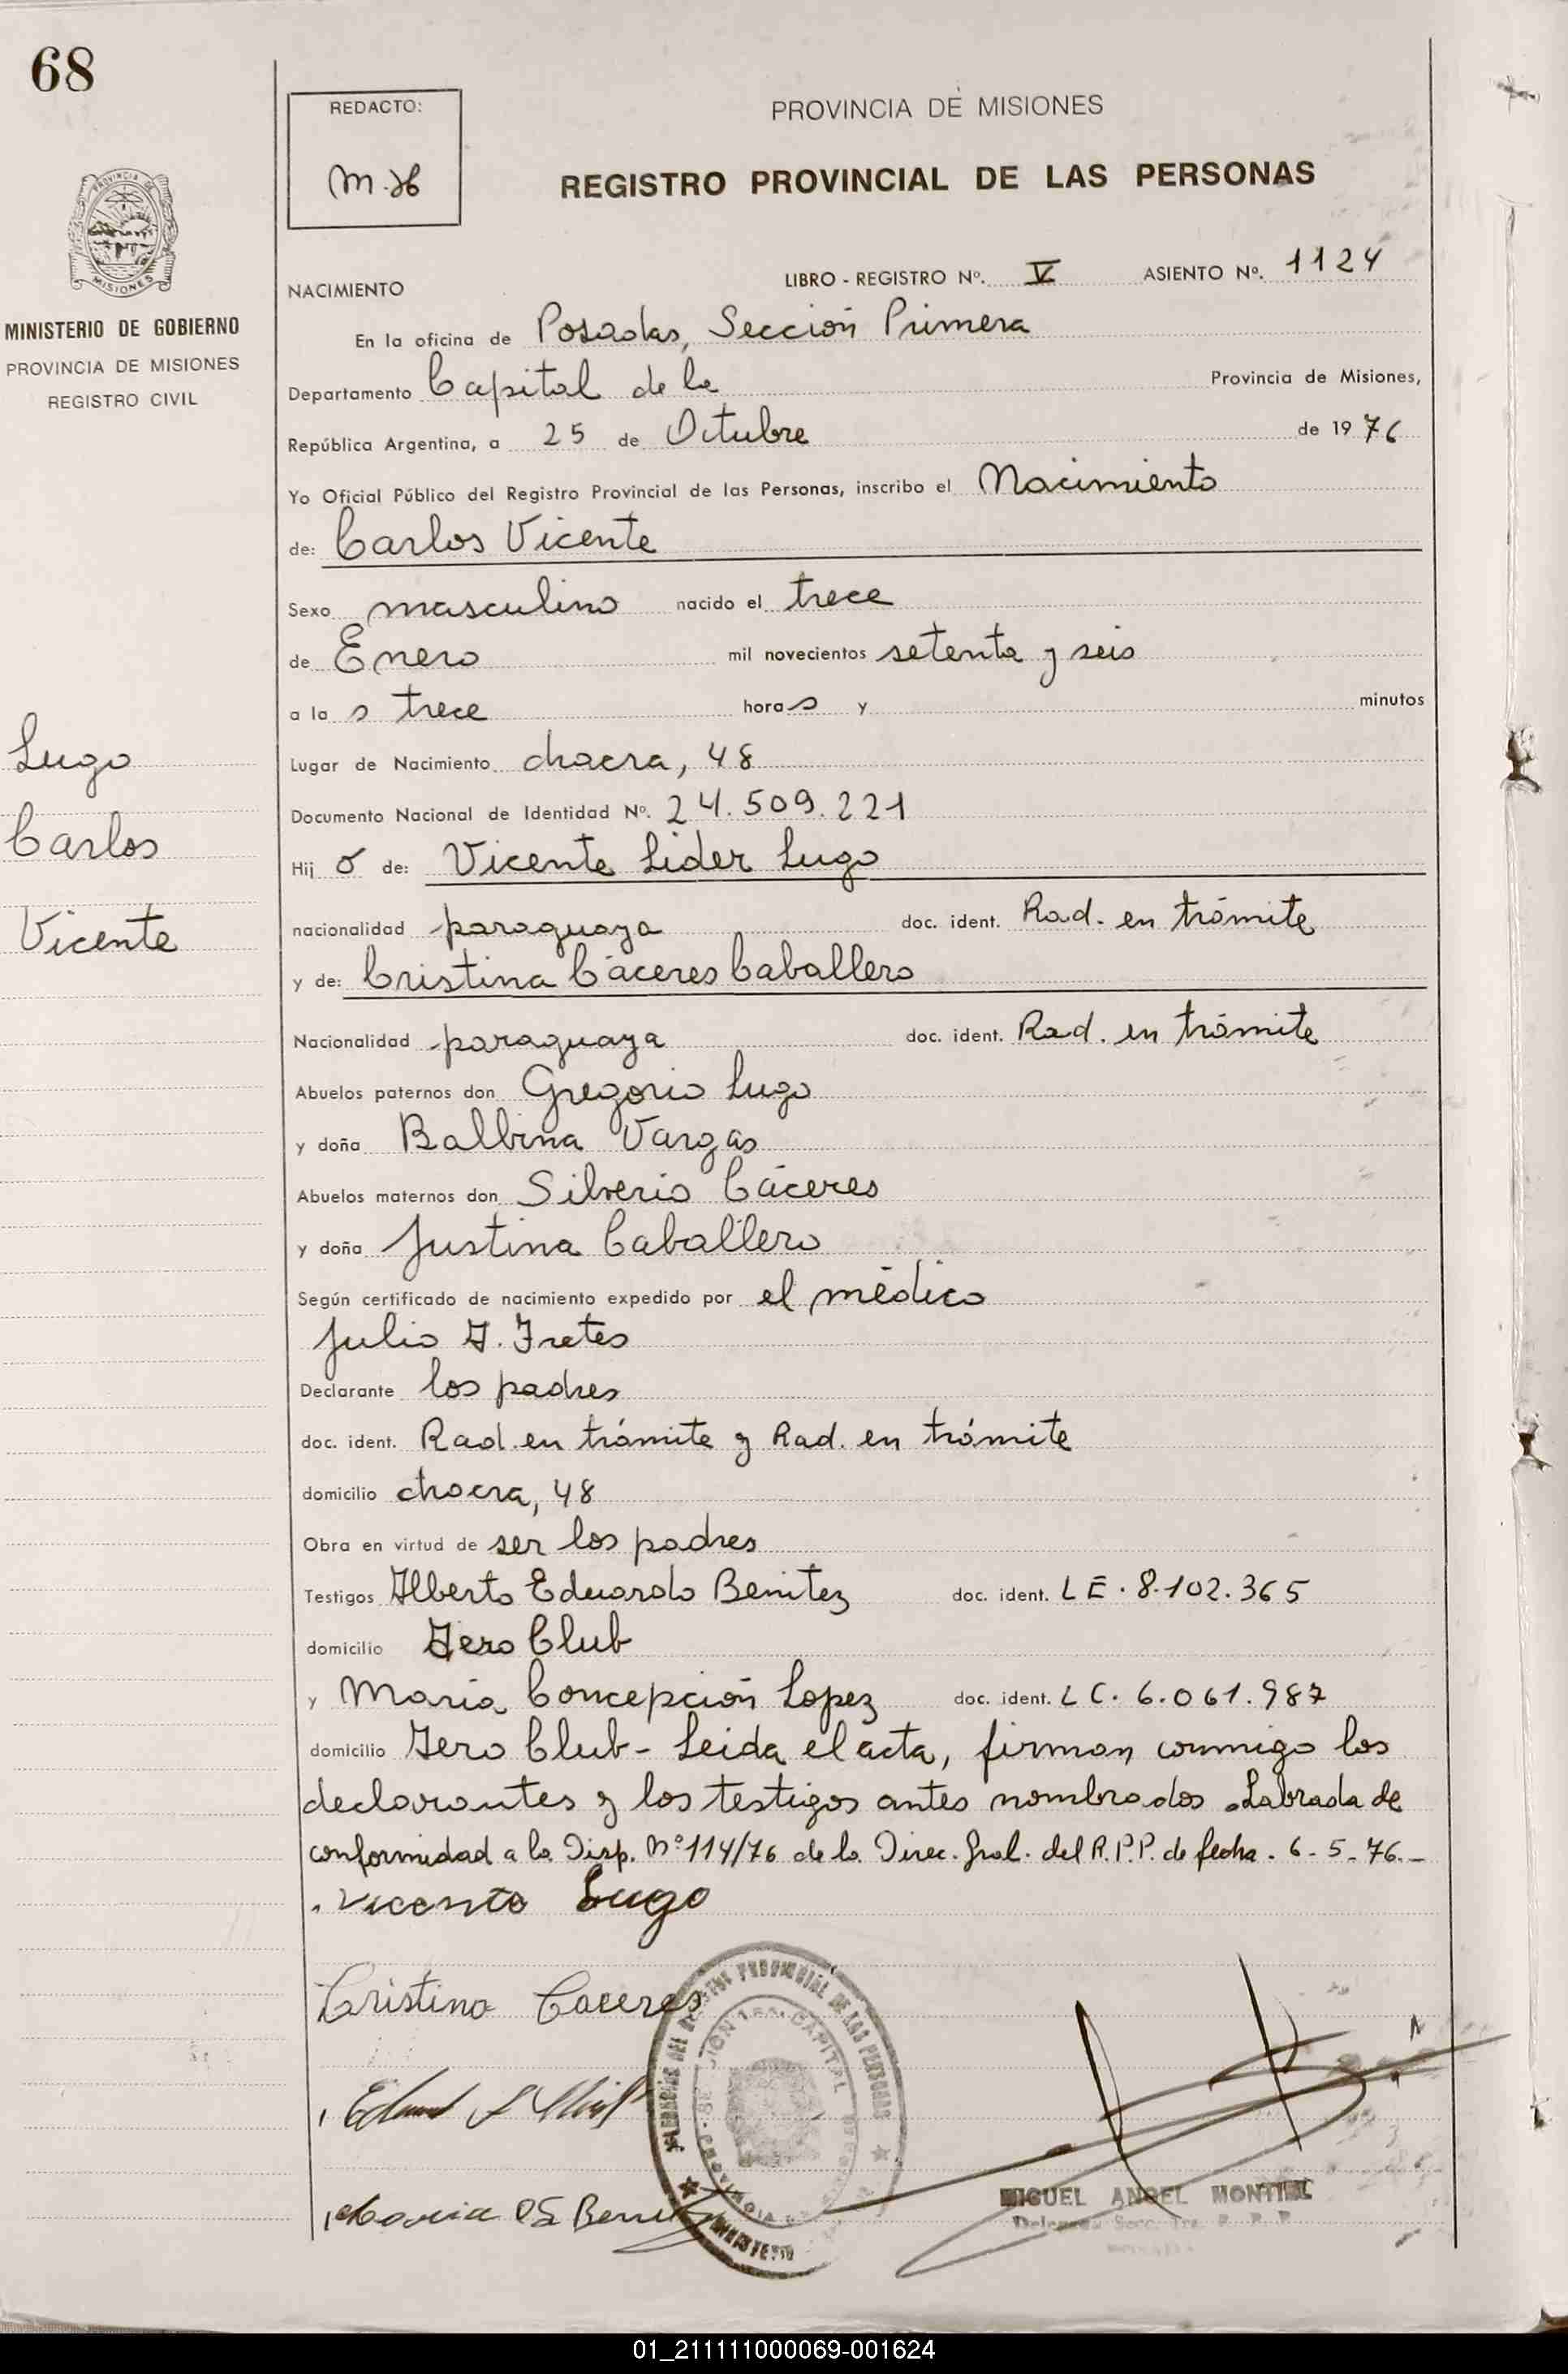 68
REDACTO:
M.H
PROVINCIA DE MISIONES
REGISTRO PROVINCIAL DE LAS PERSONAS
PROVINCIA DE
MISIONES
MINISTERIO DE GOBIERNO
PROVINCIA DE MISIONES
REGISTRO CIVIL
NACIMIENTO LIBRO - REGISTRO Nº. V ASIENTO Nº. 1124
En la oficina de Posadas, Sección Primera
Departamento Capital de la Provincia de Misiones,
República Argentina, a 25 de Octubre de 1976
Yo Oficial Público del Registro Provincial de las Personas, inscribo el Nacimiento
de: Carlos Vicente
Sexo masculino nacido el trece
de Enero mil novecientos setenta y seis
a las trece horas y minutos
Lugar de Nacimiento chacra, 48
Documento Nacional de Identidad Nº. 24.509.221
Hijo de: Vicente Lider Lugo
nacionalidad paraguaya doc. ident. Rad. en trámite
y de: Cristina Cáceres Caballero
Nacionalidad paraguaya doc. ident. Rad. en trámite
Abuelos paternos don Gregorio Lugo
y doña Balbina Vargas
Abuelos maternos don Silverio Cáceres
y doña Justina Caballero
Según certificado de nacimiento expedido por el médico
Julio A. Fretes
Declarante los padres
doc. ident. Rad. en trámite y Rad. en trámite
domicilio chacra, 48
Obra en virtud de ser los padres
Testigos Alberto Eduardo Benitez doc. ident. LE. 8.102.365
domicilio Aero Club
y María Concepción Lopez doc. ident. LC. 6.061.987
domicilio Aero Club - Leida el acta, firman conmigo los
declarantes y los testigos antes nombrados. Labrada de
conformidad a la Disp. Nº 114/76 de la Direc. Gral. del R.P.P. de fecha. 6-5-76.-
Vicente Lugo
Cristina Caceres
Maria
MIGUEL ANGEL MONTIEL
Lugo
Carlos
Vicente
01_211111000069-001624